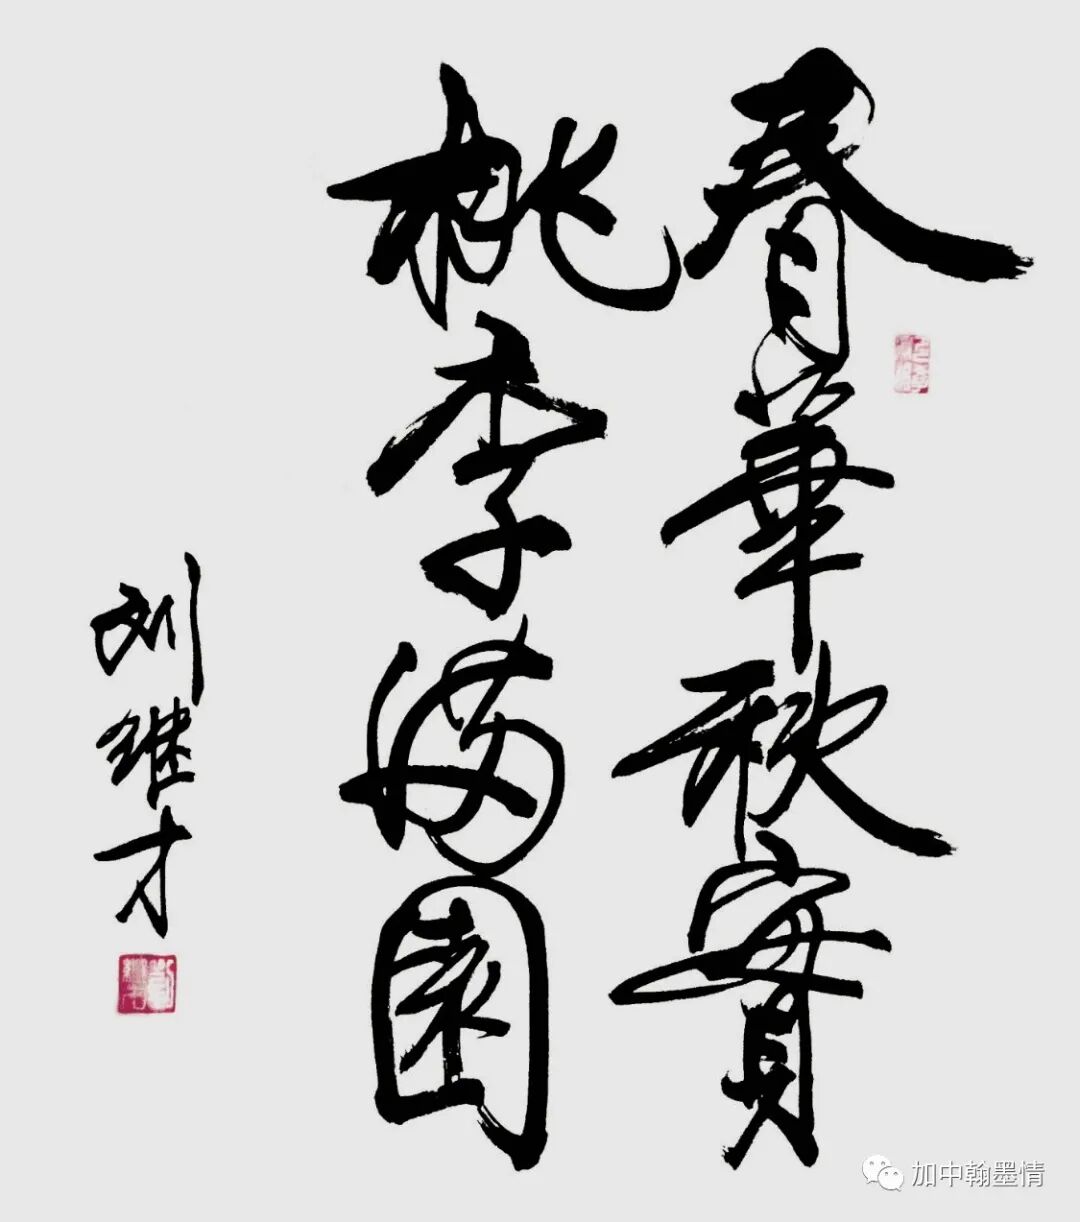 春華秋實
桃李满園
刘继才
加中翰墨情